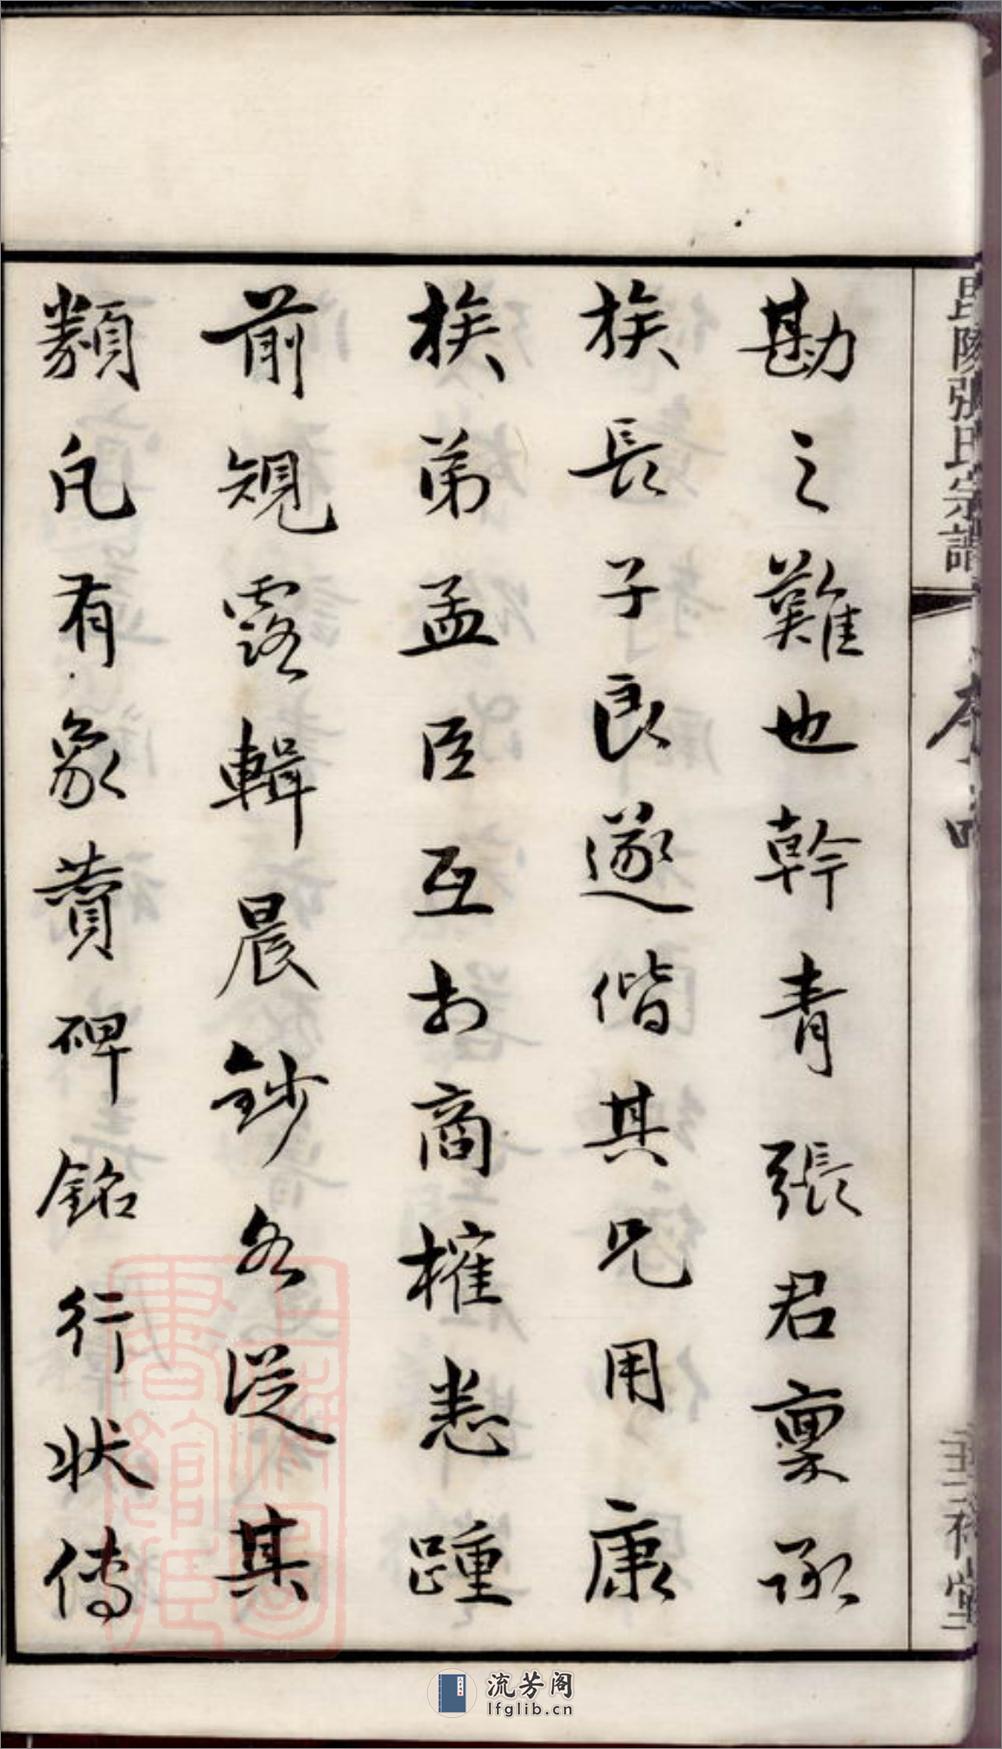 毘陵張氏宗譜
勘之難也幹青張君稟承
族長子良遂偕其兄用康
族弟孟臣互相商榷悉踵
前規露輯晨鈔各從其
類凡有象贊碑銘行狀傳
流芳阁
lfglib.cn